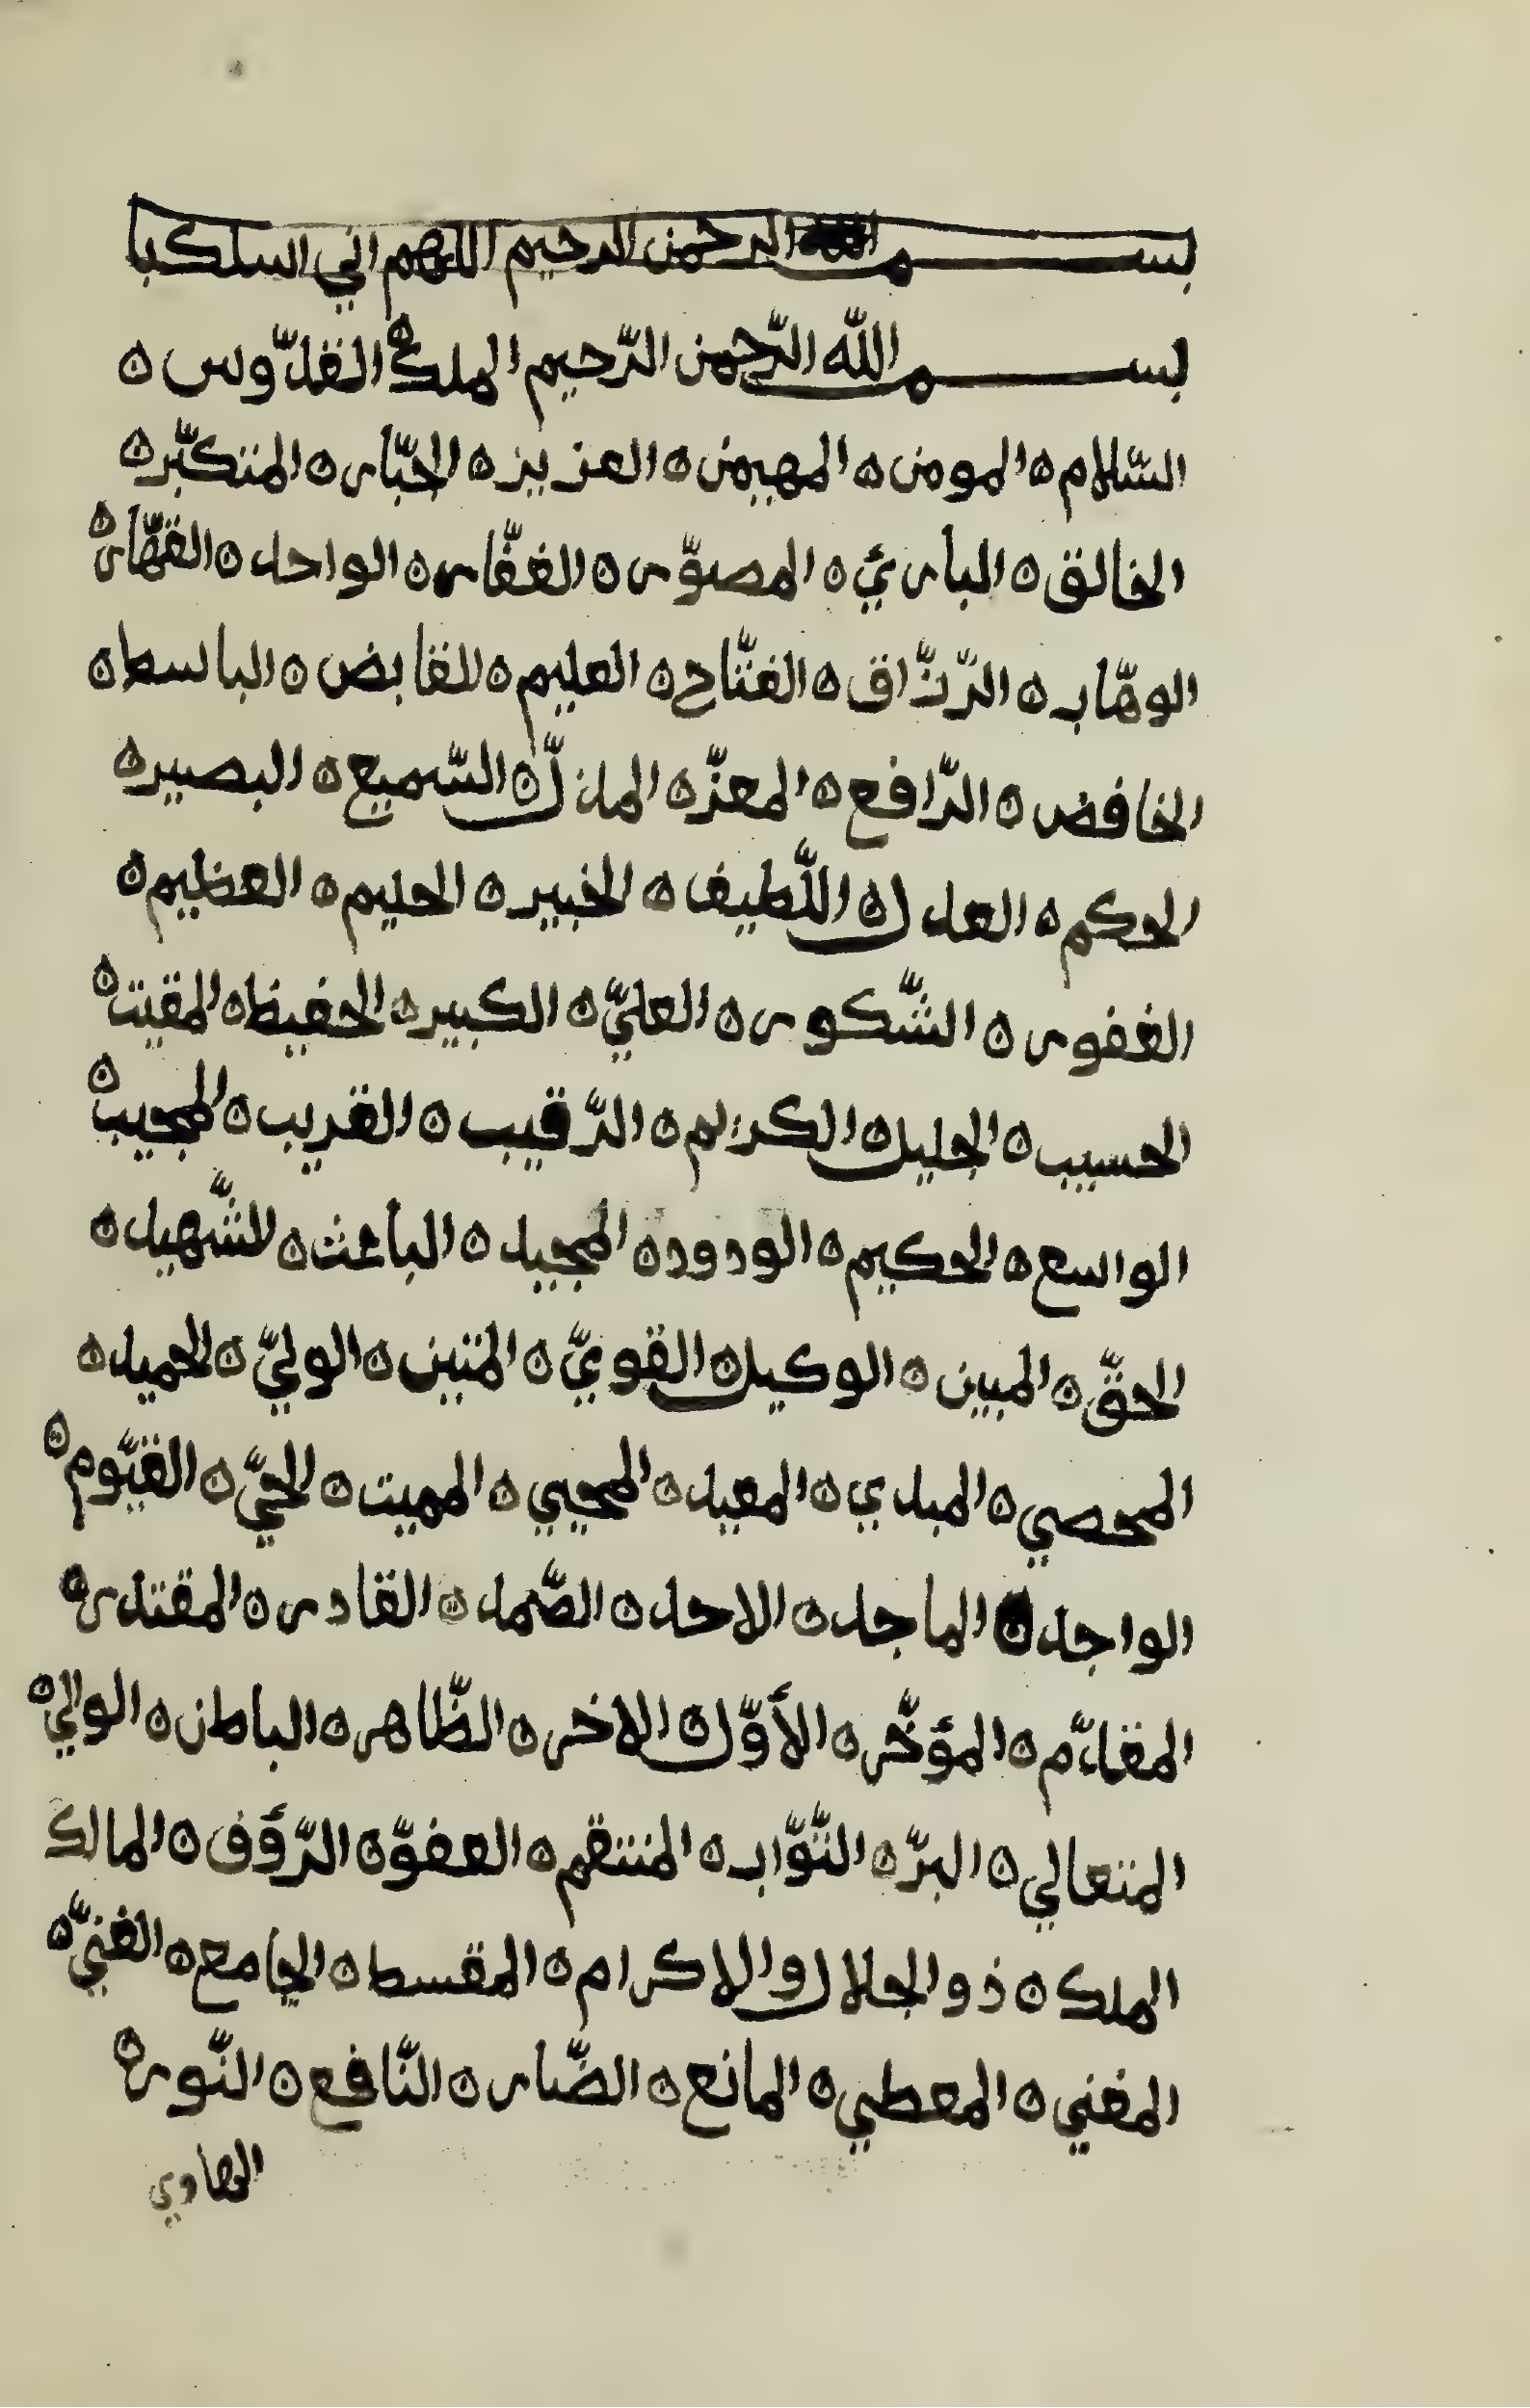 بسم الله الرحمن الرحيم اللهم اني اسلك با
بسم الله الرّحمن الرّحيم الملك ه القدّوس ه
السّلام ه المومن ه المهيمن ه العزيز ه الجبّار ه المتكبّر ه
الخالق ه البارئ ه المصوّر ه الغفّار ه الواحد ه القهّار ه
الوهّاب ه الرّزّاق ه الفتّاح ه العليم ه القابض ه الباسط ه
الخافض ه الرّافع ه المعزّ ه المذلّ ه السّميع ه البصير ه
الحكم ه العدل ه اللّطيف ه الخبير ه الحليم ه العظيم ه
الغفور ه الشّكور ه العليّ ه الكبير ه الحفيظ ه المقيت ه
الحسيب ه الجليل ه الكريم ه الرّقيب ه القريب ه المجيب ه
الواسع ه الحكيم ه الودود ه المجيد ه الباعث ه الشّهيد ه
الحقّ ه المبين ه الوكيل ه القويّ ه المتين ه الوليّ ه الحميد ه
المحصي ه المبدي ه المعيد ه المحيي ه المميت ه الحيّ ه القيّوم ه
الواجد ه الماجد ه الاحد ه الصّمد ه القادر ه المقتدر ه
المقدّم ه المؤخّر ه الأوّل ه الاخر ه الظّاهر ه الباطن ه الوالي ه
المتعالي ه البرّ ه التّوّاب ه المنتقم ه العفوّ ه الرّؤف ه المالك
الملك ه ذو الجلال والاكرام ه المقسط ه الجامع ه الغنيّ ه
المغني ه المعطي ه المانع ه الضّار ه النّافع ه النّور ه
الهادي